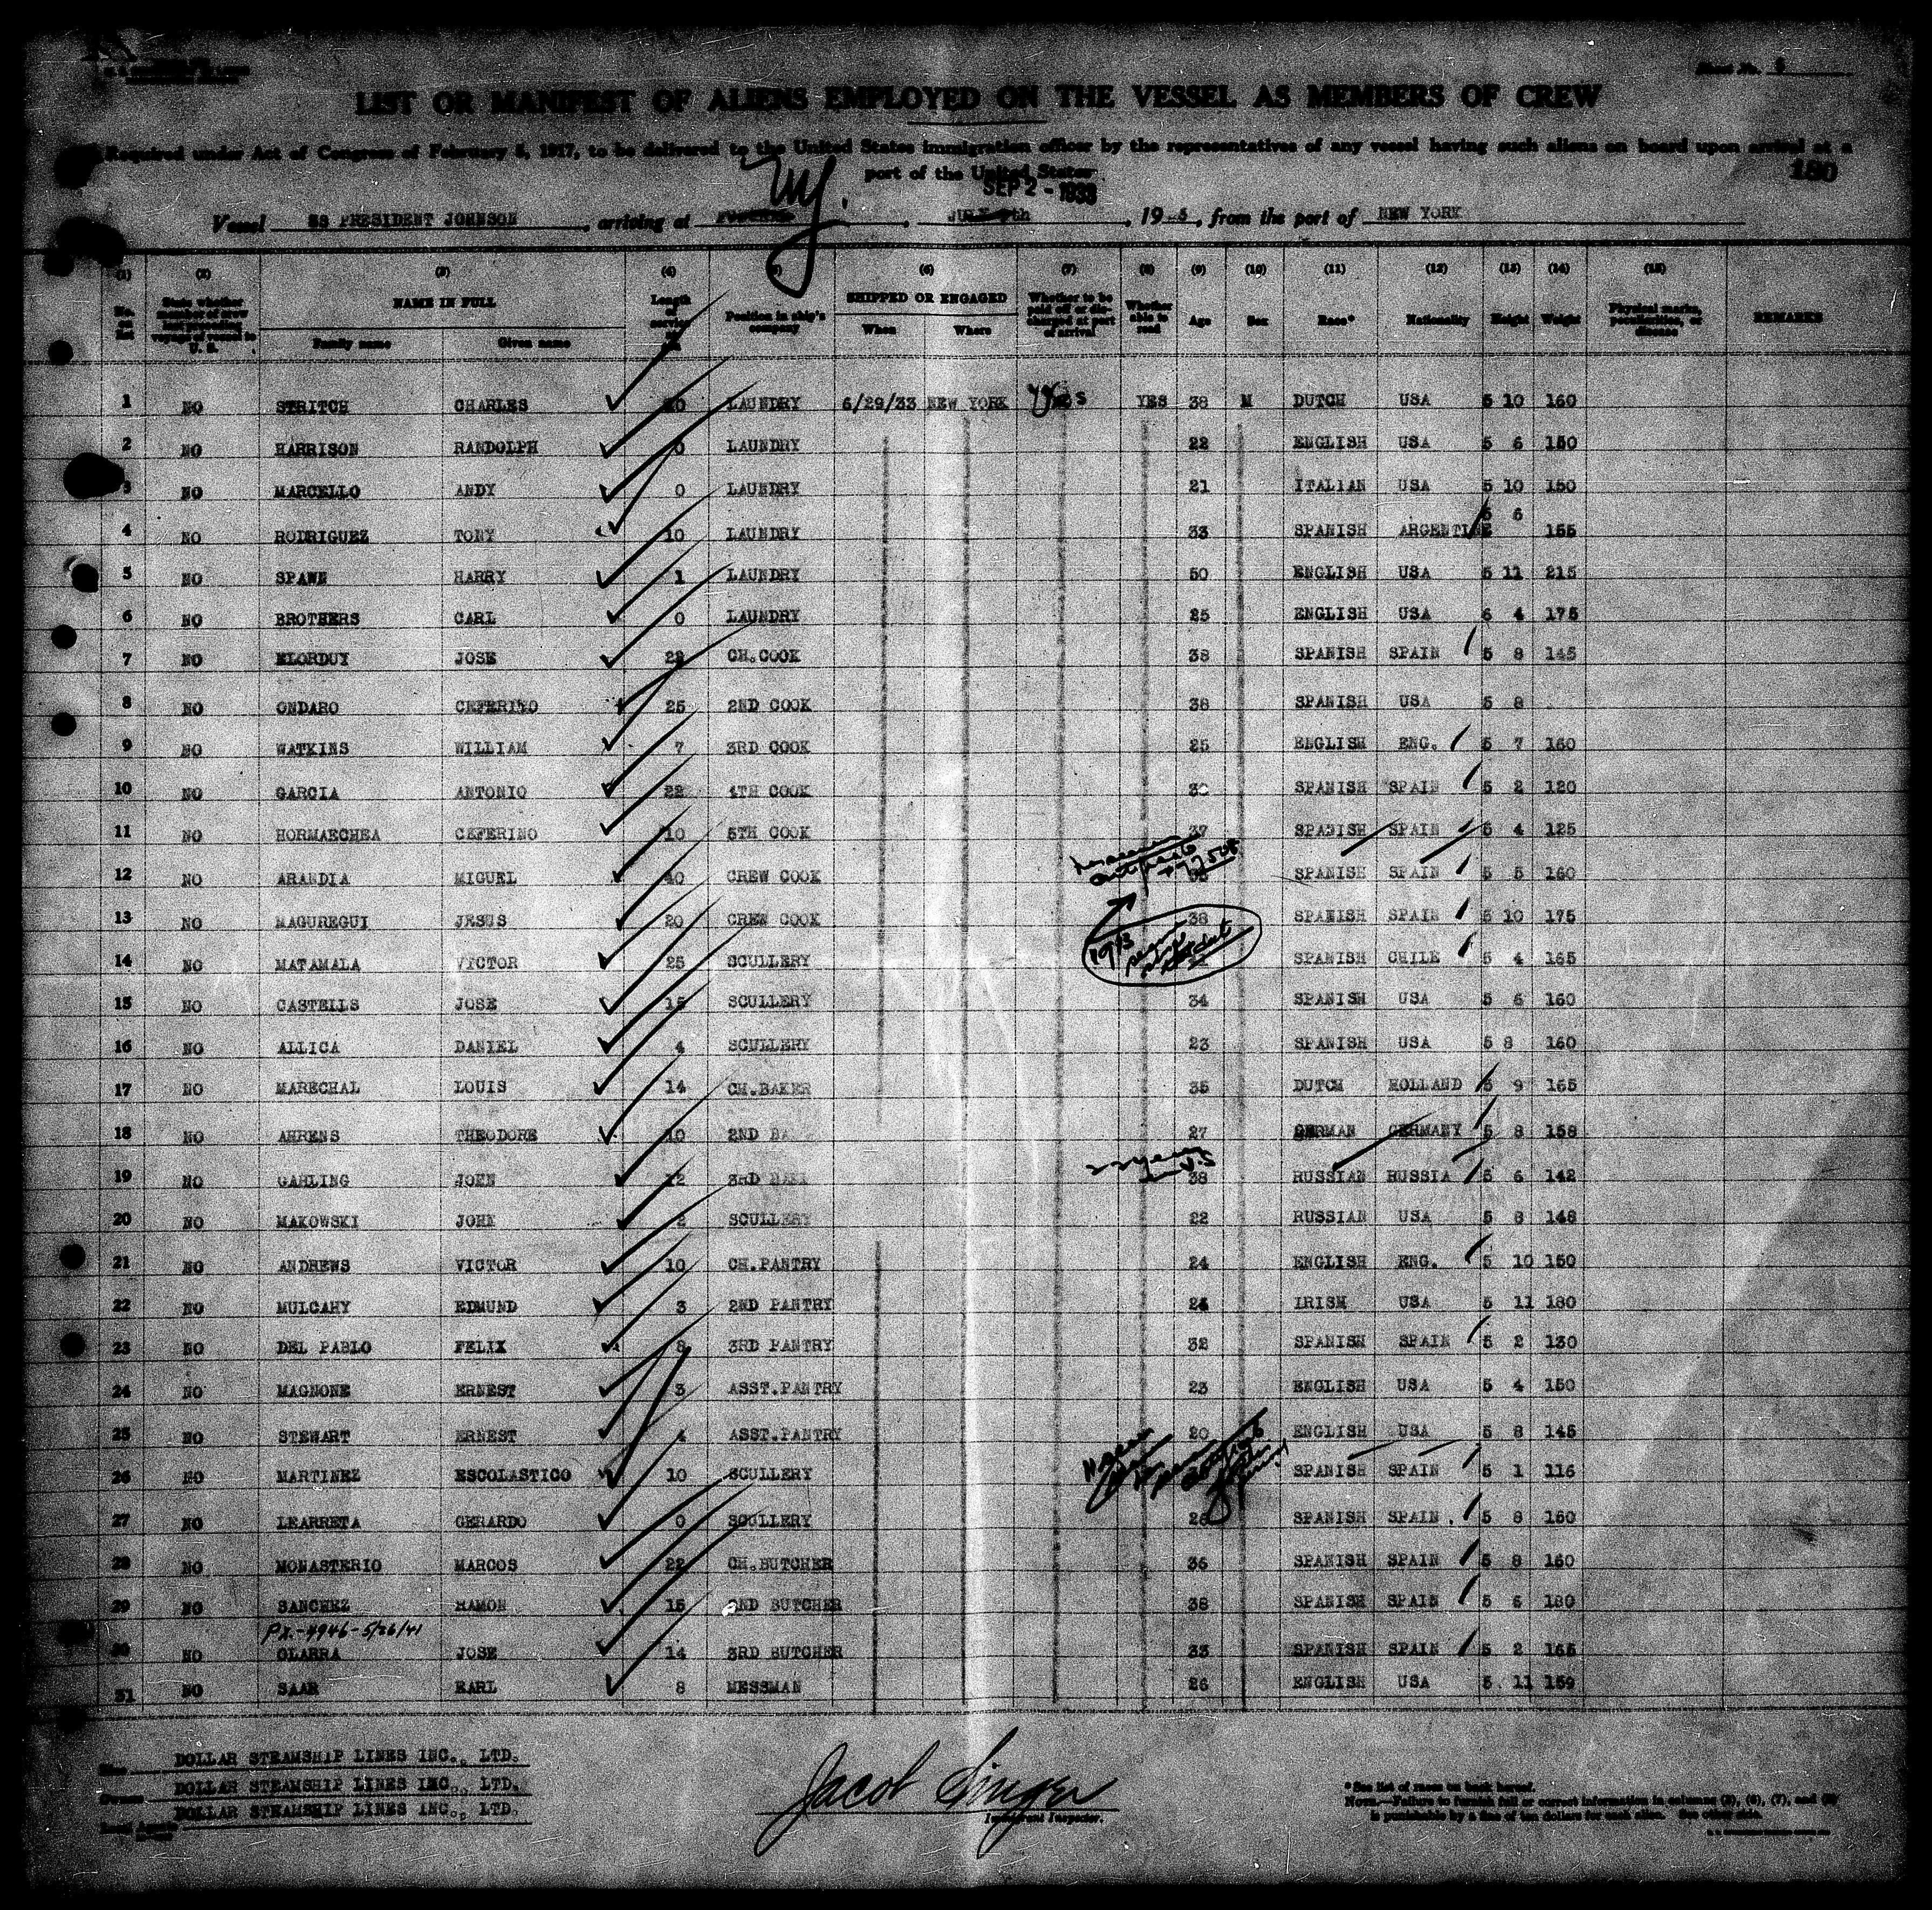 Sheet No. 6
LIST OR MANIFEST OF ALIENS EMPLOYED ON THE VESSEL AS MEMBERS OF CREW
Required under Act of Congress of February 5, 1917, to be delivered to the United States immigration officer by the representatives of any vessel having such aliens on board upon arrival at a
port of the United States
180
SEP 2 - 1933
Vessel SS PRESIDENT JOHNSON, arriving at NY., JULY 9th, 19, from the port of NEW YORK
(1) (2) (3) (4) (5) (6) (7) (8) (9) (10) (11) (12) (13) (14) (15)
No. on list State whether member of crew last preceding voyage of vessel to U. S. NAME IN FULL Family name Given name Length of service at sea Position in ship's company SHIPPED OR ENGAGED When Where Whether to be paid off or discharged at port of arrival Whether able to read Age Sex Race* Nationality Height Weight Physical marks, peculiarities, or disease REMARKS
1 NO STRITCH CHARLES 20 LAUNDRY 6/29/33 NEW YORK yes YES 38 M DUTCH USA 5 10 160
2 NO HARRISON RANDOLPH 0 LAUNDRY 22 ENGLISH USA 5 6 150
3 NO MARCELLO ANDY 0 LAUNDRY 21 ITALIAN USA 5 10 150
4 NO RODRIGUEZ TONY 10 LAUNDRY 33 SPANISH ARGENTINE 5 6 155
5 NO SPAWN HARRY 1 LAUNDRY 50 ENGLISH USA 5 11 215
6 NO BROTHERS CARL 0 LAUNDRY 25 ENGLISH USA 6 4 175
7 NO ELORDUY JOSE 22 CH.COOK 38 SPANISH SPAIN 5 8 145
8 NO ONDARO CEFERINO 25 2ND COOK 38 SPANISH USA 5 8
9 NO WATKINS WILLIAM 7 3RD COOK 25 ENGLISH ENG. 5 7 160
10 NO GARCIA ANTONIO 22 4TH COOK 32 SPANISH SPAIN 5 2 120
11 NO HORMAECHEA CEFERINO 10 5TH COOK 37 SPANISH SPAIN 5 4 125
12 NO ARANDIA MIGUEL CREW COOK SPANISH SPAIN 5 5 160
13 NO MAGUREGUI JESUS 20 CREW COOK 38 SPANISH SPAIN 5 10 175
14 NO MATAMALA VICTOR 25 SCULLERY SPANISH CHILE 5 4 165
1913
15 NO CASTELLS JOSE 15 SCULLERY 34 SPANISH USA 5 6 160
16 NO ALLICA DANIEL 4 SCULLERY 23 SPANISH USA 5 8 160
17 NO MARECHAL LOUIS 14 CH.BAKER 35 DUTCH HOLLAND 5 9 165
18 NO AHRENS THEODORE 10 2ND BA 27 GERMAN GERMANY 5 8 158
22 years in U.S
19 NO GAHLING JOHN 12 3RD BAKE 38 RUSSIAN RUSSIA 5 6 142
20 NO MAKOWSKI JOHN 2 SCULLERY 22 RUSSIAN USA 5 8 148
21 NO ANDREWS VICTOR 10 CH.PANTRY 24 ENGLISH ENG. 5 10 150
22 NO MULCAHY EDMUND 3 2ND PANTRY 24 IRISH USA 5 11 180
23 NO DEL PABLO FELIX 8 3RD PANTRY 32 SPANISH SPAIN 5 2 130
24 NO MAGNONE ERNEST 3 ASST.PANTRY 23 ENGLISH USA 5 4 150
25 NO STEWART ERNEST 4 ASST.PANTRY 20 ENGLISH USA 5 8 145
26 NO MARTINEZ ESCOLASTICO 10 SCULLERY SPANISH SPAIN 5 1 116
27 NO LEARRETA GERARDO 0 SCULLERY 26 SPANISH SPAIN 5 8 160
28 NO MONASTERIO MARCOS 22 CH.BUTCHER 36 SPANISH SPAIN 5 8 160
29 NO SANCHEZ RAMON 15 2ND BUTCHER 38 SPANISH SPAIN 5 6 180
PX.-4946-5/26/41
30 NO OLARRA JOSE 14 3RD BUTCHER 33 SPANISH SPAIN 5 2 165
31 NO SAAR EARL 8 MESSMAN 26 ENGLISH USA 5 11 159
DOLLAR STEAMSHIP LINES INC., LTD.
Owners DOLLAR STEAMSHIP LINES INC., LTD.
Local Agents DOLLAR STEAMSHIP LINES INC., LTD.
Jacob Singer
Immigrant Inspector.
*See list of races on back hereof.
NOTE.—Failure to furnish full or correct information in columns (2), (6), (7), and (8)
is punishable by a fine of ten dollars for each alien. See other side.